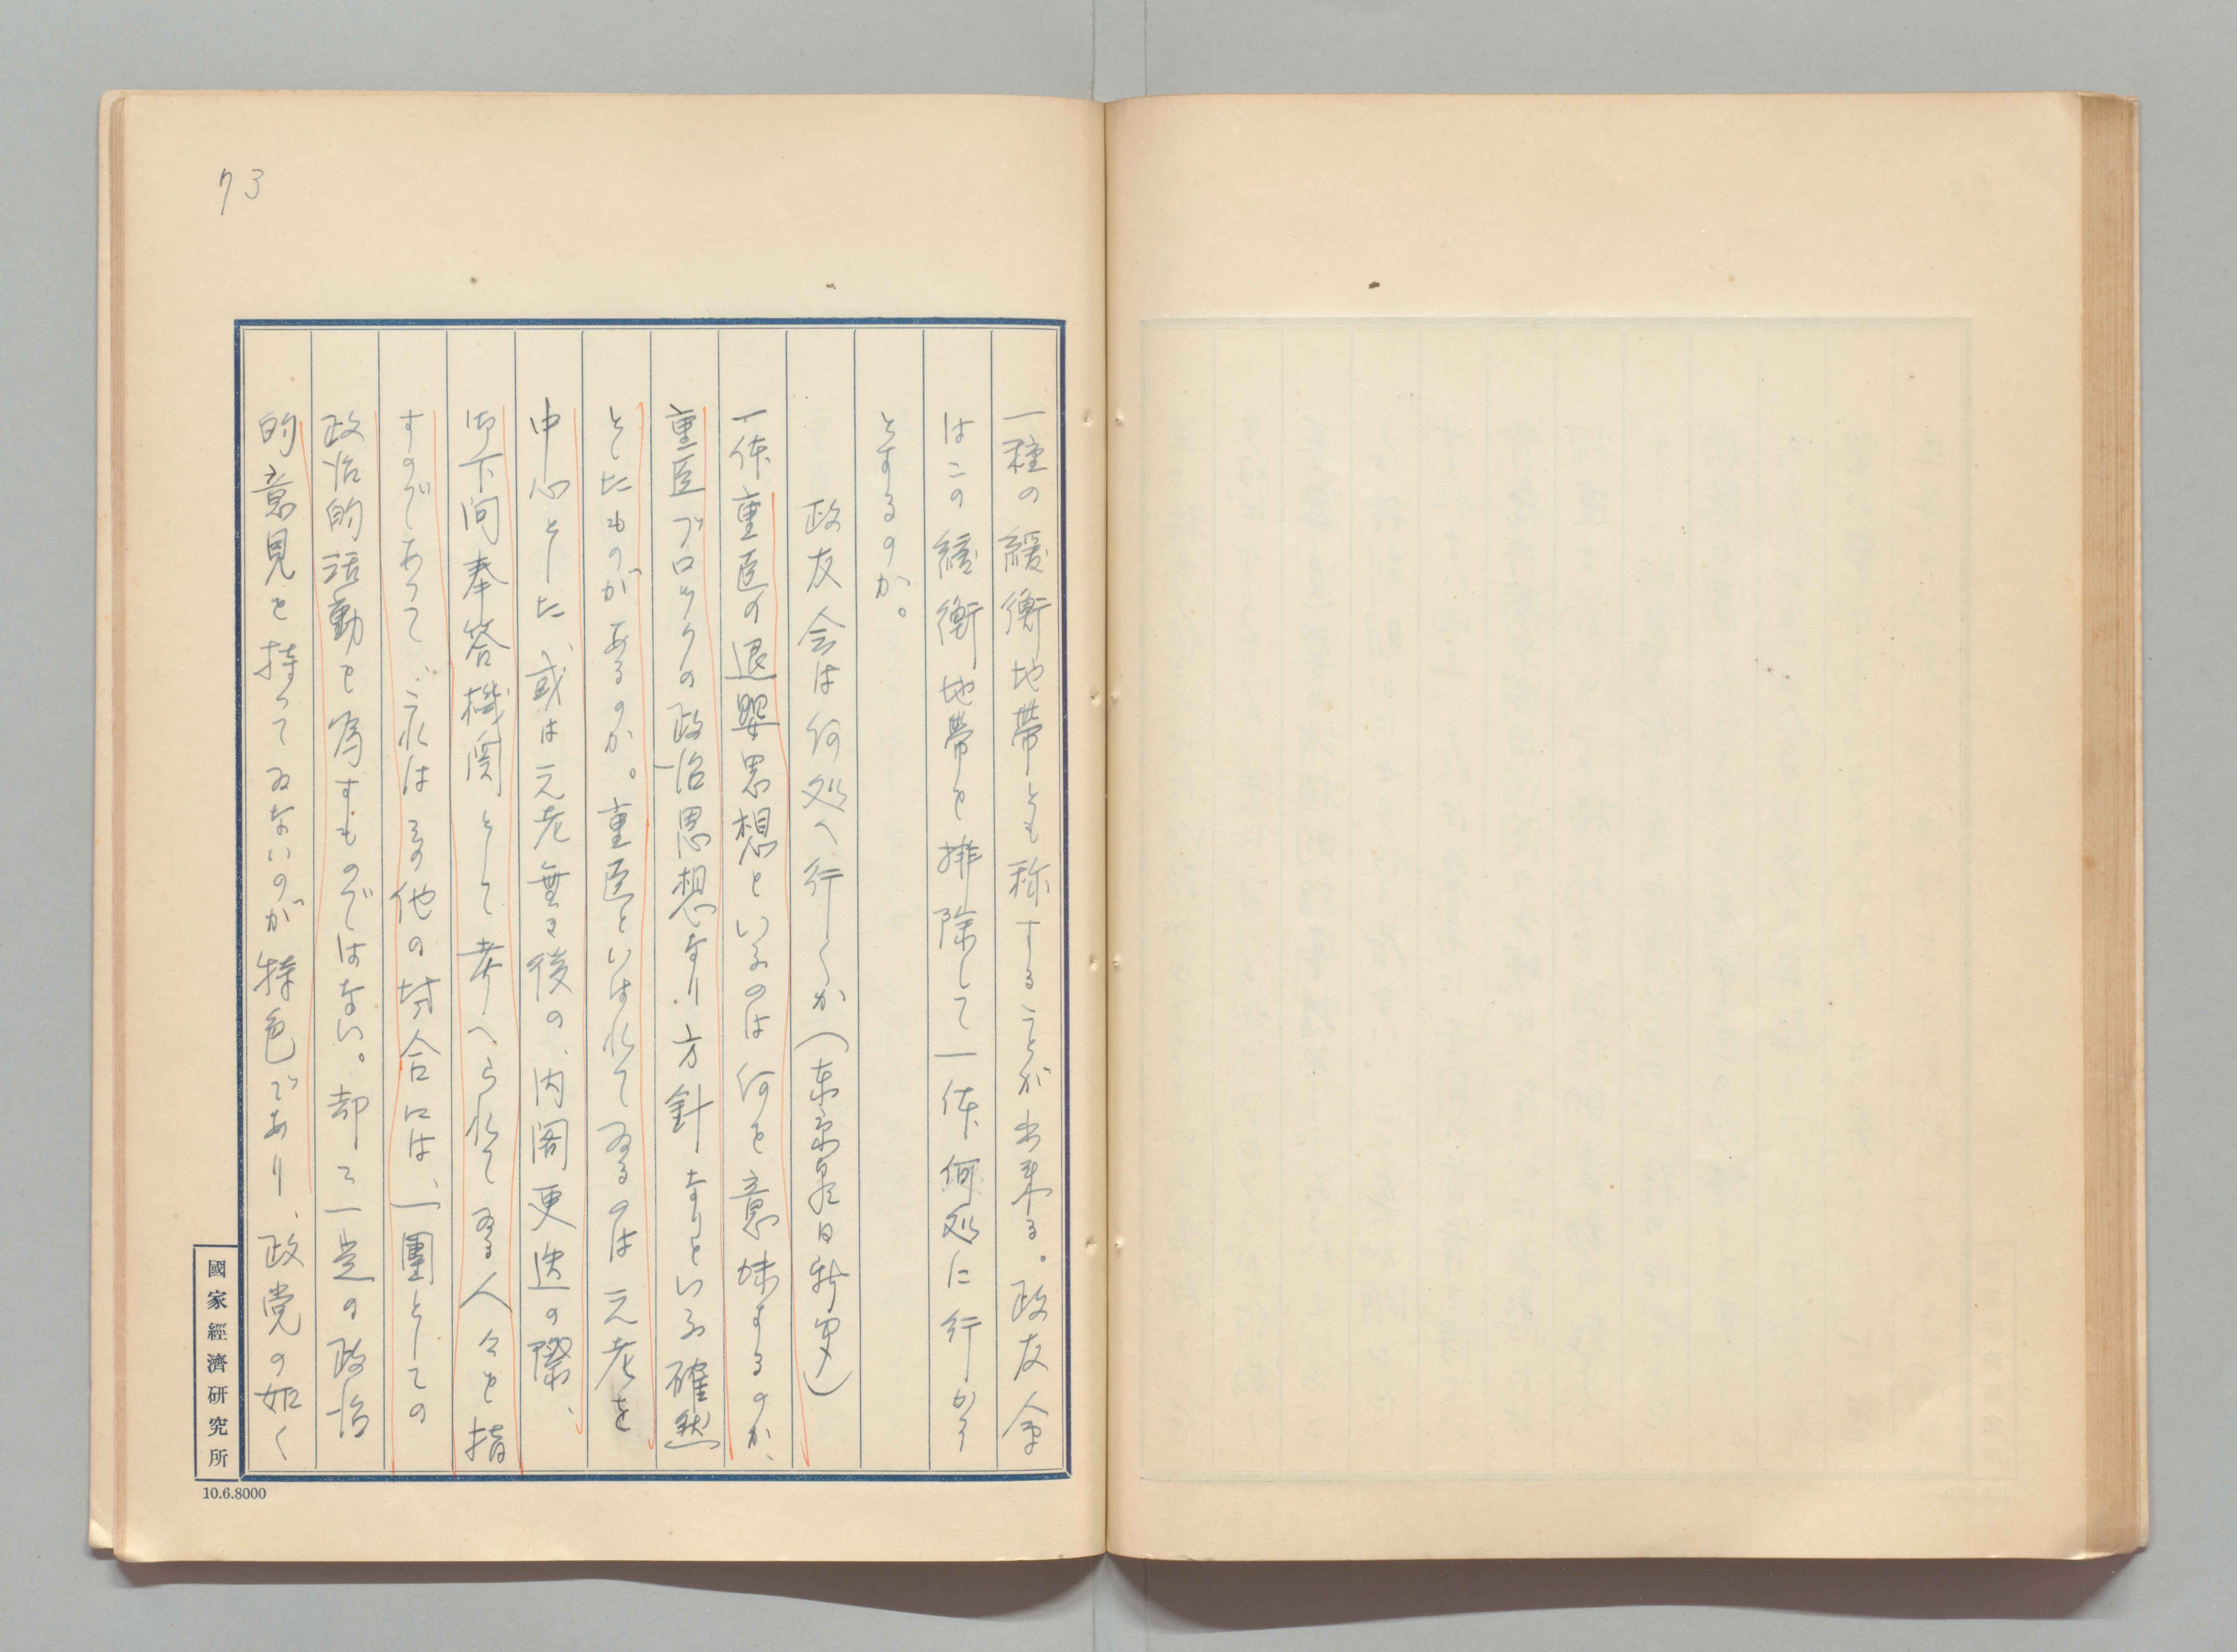 73
一種の緩衝地帯とも称することが出来る。政友会
はこの緩衝地帯を排除して一体何処に行かう
とするのか。
政友会は何処へ行くか(東京日日新聞)
一体重臣の退嬰思想といふのは何を意味するのか、
重臣ブロックの政治思想なり、方針なりといふ確然
としたものがあるのか。重臣といはれてゐるのは元老を
中心とした、或は元老無き後の、内閣更迭の際、
御下問奉答機関として考へられてゐる人々を指
すのであつて、これはその他の場合には、一團としての
政治的活動を為すものではない。却て一定の政治
的意見を持つてゐないのが特色であり、政党の如く
國家經濟研究所
10.6.8000